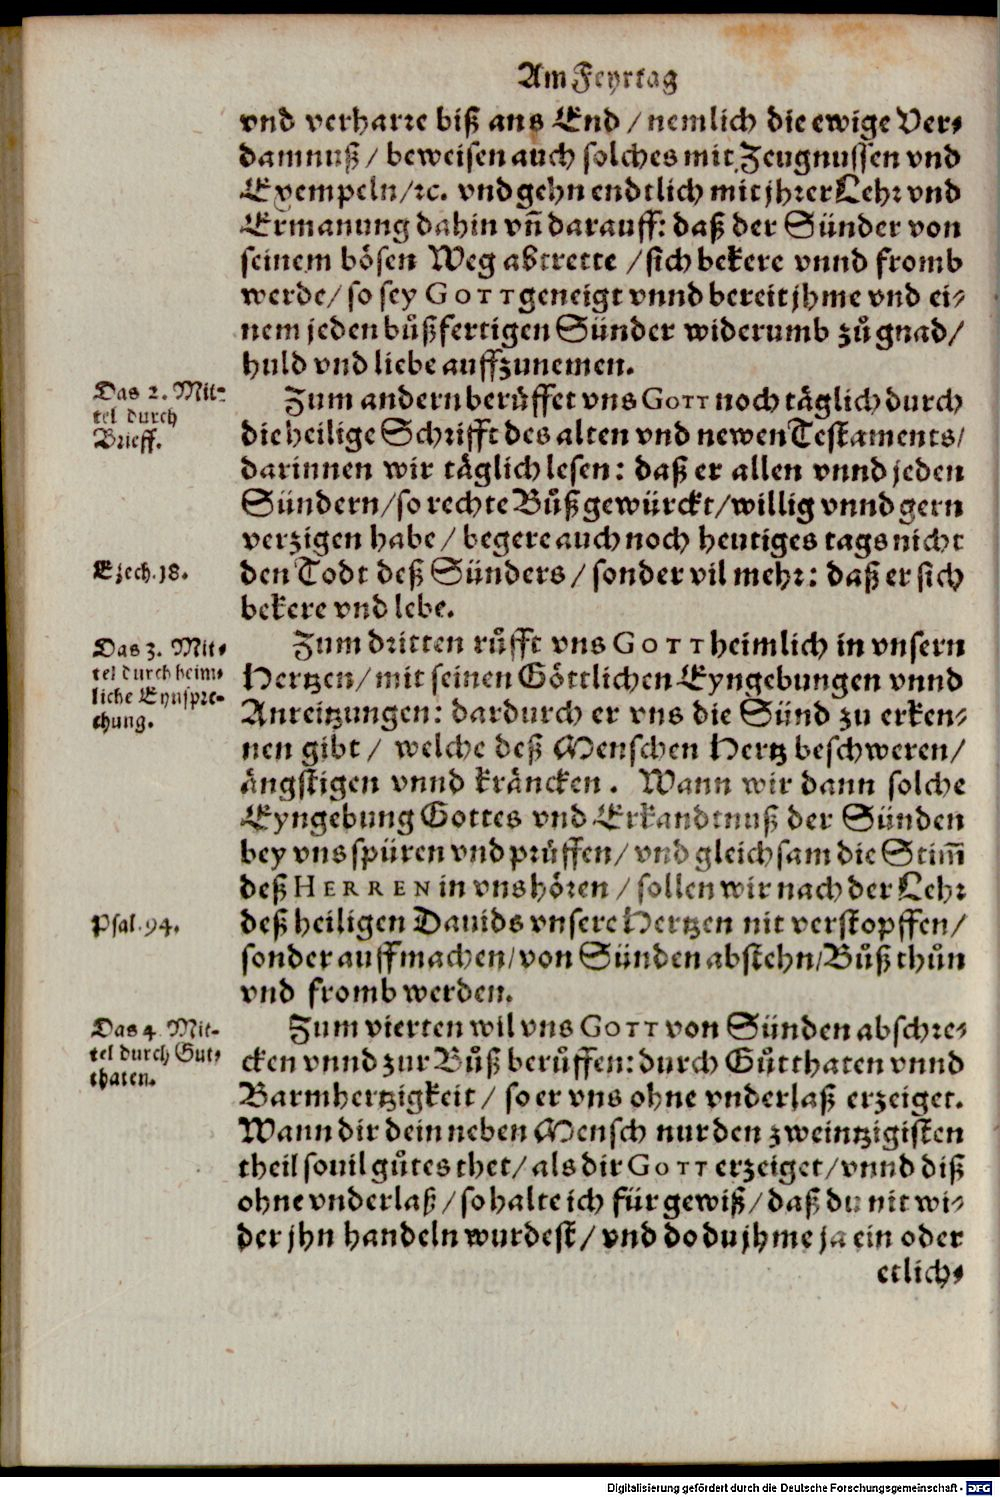 Am Feyrtag
vnd verharre biß ans End / nemlich die ewige Ver-
damnuß / beweisen auch solches mit Zeugnussen vnd
Exempeln / ꝛc. vnd gehn endtlich mit jhrer Lehr vnd
Ermanung dahin vñ darauff: daß der Sünder von
seinem bösen Weg abtrette / sich bekere vnnd fromb
werde / so sey GOTT geneigt vnnd bereit jhme vnd ei-
nem jeden bůßfertigen Sünder widerumb zů gnad /
huld vnd liebe auffzunemen.
Das 2. Mit-
tel durch
Brieff.
Zum andern berůffet vns GOTT noch täglich durch
die heilige Schrifft des alten vnd newen Testaments /
darinnen wir täglich lesen: daß er allen vnnd jeden
Sündern / so rechte Bůß gewürckt / willig vnnd gern
verzigen habe / begere auch noch heutiges tags nicht
Ezech. 18.
den Todt deß Sünders / sonder vil mehr: daß er sich
bekere vnd lebe.
Das 3. Mit-
tel durch heim-
liche Eynspre-
chung.
Zum dritten růfft vns GOTT heimlich in vnsern
Hertzen / mit seinen Göttlichen Eyngebungen vnnd
Anreitzungen: dardurch er vns die Sünd zu erken-
nen gibt / welche deß Menschen Hertz beschweren /
ängstigen vnnd kräncken. Wann wir dann solche
Eyngebung Gottes vnd Erkandtnuß der Sünden
bey vns spüren vnd průffen / vnd gleichsam die Stim̃
deß HERREN in vns hören / sollen wir nach der Lehr
Psal. 94.
deß heiligen Dauids vnsere Hertzen nit verstopffen /
sonder auffmachen / von Sünden abstehn / Bůß thůn
vnd fromb werden.
Das 4. Mit-
tel durch Gut-
thaten.
Zum vierten wil vns GOTT von Sünden abschre-
cken vnnd zur Bůß berůffen: durch Gůtthaten vnnd
Barmhertzigkeit / so er vns ohne vnderlaß erzeiget.
Wann dir dein neben Mensch nur den zweintzigisten
theil souil gůtes thet / als dir GOTT erzeiget / vnnd diß
ohne vnderlaß / so halte ich für gewiß / daß du nit wi-
der jhn handeln wurdest / vnd do du jhme ja ein oder
etlich-
Digitalisierung gefördert durch die Deutsche Forschungsgemeinschaft - DFG